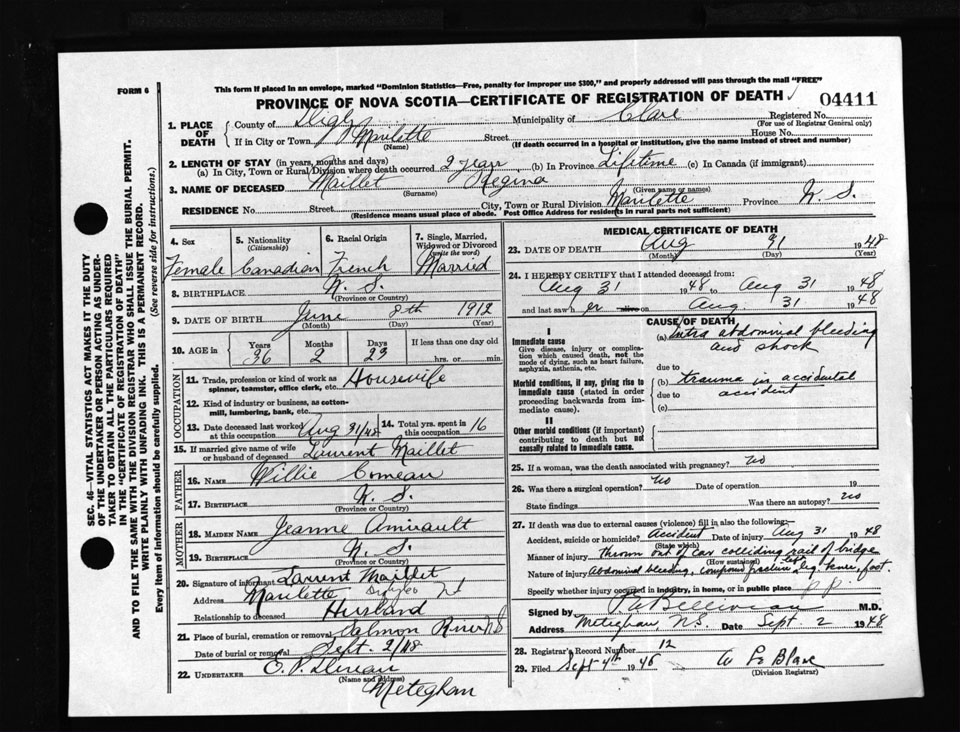 FORM 6
This form if placed in an envelope, marked "Dominion Statistics—Free, penalty for improper use $300," and properly addressed will pass through the mail "FREE"
PROVINCE OF NOVA SCOTIA—CERTIFICATE OF REGISTRATION OF DEATH
04411
1. PLACE OF DEATH County of Digby Municipality of Clare Registered No.
(For use of Registrar General only)
If in City or Town Mavilette Street House No.
(Name) (If death occurred in a hospital or institution, give the name instead of street and number)
2. LENGTH OF STAY (in years, months and days)
(a) In City, Town or Rural Division where death occurred 2 years (b) In Province Lifetime (c) In Canada (if immigrant)
3. NAME OF DECEASED Maillet Regina
(Surname) (Given name or names)
RESIDENCE No. Street City, Town or Rural Division Mavilette Province N. S.
(Residence means usual place of abode. Post Office Address for residents in rural parts not sufficient)
4. Sex 5. Nationality (Citizenship) 6. Racial Origin 7. Single, Married, Widowed or Divorced (write the word)
Female Canadian French Married
8. BIRTHPLACE N. S.
(Province or Country)
9. DATE OF BIRTH June 8th 1912
(Month) (Day) (Year)
10. AGE in Years Months Days If less than one day old
36 2 23 hrs. or min.
OCCUPATION
11. Trade, profession or kind of work as spinner, teamster, office clerk, etc. Housewife
12. Kind of industry or business, as cotton-mill, lumbering, bank, etc.
13. Date deceased last worked at this occupation Aug 31/48 14. Total yrs. spent in this occupation 16
15. If married give name of wife or husband of deceased Laurent Maillet
FATHER
16. NAME Willie Comeau
17. BIRTHPLACE N. S.
(Province or Country)
MOTHER
18. MAIDEN NAME Jeanne Amirault
19. BIRTHPLACE N. S.
(Province or Country)
20. Signature of informant Laurent Maillet
Address Mavilette Digby Co NS
Relationship to deceased Husband
21. Place of burial, cremation or removal Salmon River NS
Date of burial or removal Sept. 2/48
22. UNDERTAKER
(Name and address)
Meteghan
MEDICAL CERTIFICATE OF DEATH
23. DATE OF DEATH Aug 31 1948
(Month) (Day) (Year)
24. I HEREBY CERTIFY that I attended deceased from:
Aug 31 1948 to Aug 31 1948
and last saw her alive on Aug. 31 1948
CAUSE OF DEATH
I
Immediate cause
Give disease, injury or complication which caused death, not the mode of dying, such as heart failure, asphyxia, asthenia, etc.
(a) Intra abdominal bleeding
and shock
due to
Morbid conditions, if any, giving rise to immediate cause (stated in order proceeding backwards from immediate cause).
(b) trauma in accidental
due to accident
(c)
II
Other morbid conditions (if important) contributing to death but not causally related to immediate cause.
25. If a woman, was the death associated with pregnancy? no
26. Was there a surgical operation? no Date of operation 19
State findings Was there an autopsy? no
27. If death was due to external causes (violence) fill in also the following:—
Accident, suicide or homicide? Accident Date of injury Aug 31 1948
(State which)
Manner of injury thrown out of car colliding rail of bridge
(How sustained)
Nature of injury Abdominal bleeding, compound fracture leg, knee, foot.
Specify whether injury occurred in industry, in home, or in public place p.p.
Signed by M.D.
Address Meteghan, N.S. Date Sept. 2 1948
28. Registrar's Record Number 12
29. Filed Sept 4th 1948 LeBlanc
(Division Registrar)
SEC. 46—VITAL STATISTICS ACT MAKES IT THE DUTY
OF THE UNDERTAKER OR PERSON ACTING AS UNDER-
TAKER TO OBTAIN ALL THE PARTICULARS REQUIRED
IN THE "CERTIFICATE OF REGISTRATION OF DEATH"
AND TO FILE THE SAME WITH THE DIVISION REGISTRAR WHO SHALL ISSUE THE BURIAL PERMIT.
WRITE PLAINLY WITH UNFADING INK. THIS IS A PERMANENT RECORD.
Every item of information should be carefully supplied. (See reverse side for instructions.)